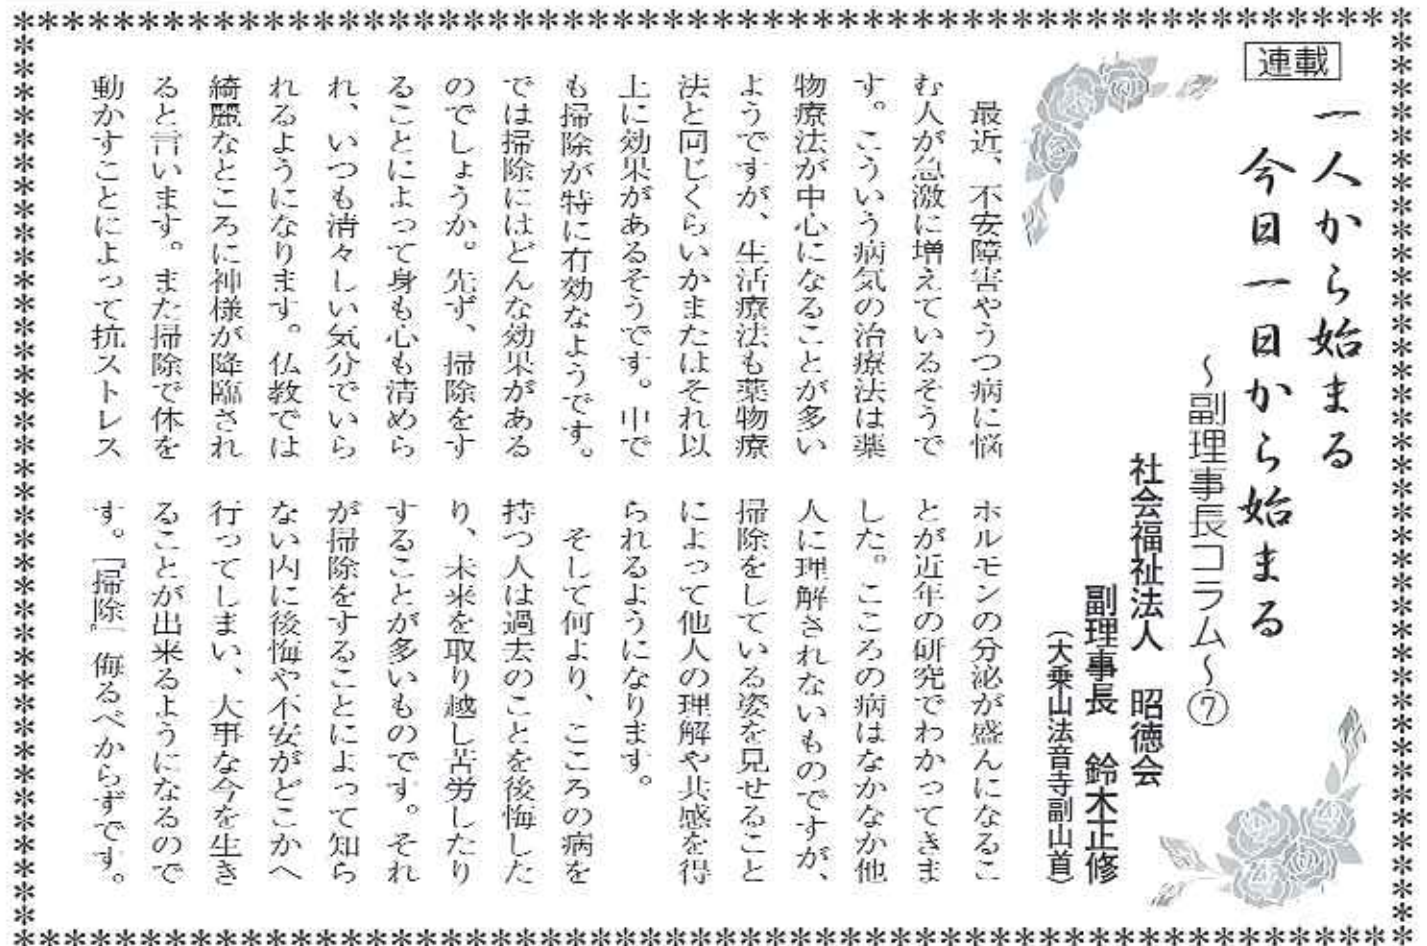 連載
一人から始まる
今日一日から始まる
～副理事長コラム～⑦
社会福祉法人　昭徳会
副理事長　鈴木正修
（大乗山法音寺副山首）
　最近、不安障害やうつ病に悩
む人が急激に増えているそうで
す。こういう病気の治療法は薬
物療法が中心になることが多い
ようですが、生活療法も薬物療
法と同じくらいかまたはそれ以
上に効果があるそうです。中で
も掃除が特に有効なようです。
では掃除にはどんな効果がある
のでしょうか。先ず、掃除をす
ることによって身も心も清めら
れ、いつも清々しい気分でいら
れるようになります。仏教では
綺麗なところに神様が降臨され
ると言います。また掃除で体を
動かすことによって抗ストレス
ホルモンの分泌が盛んになるこ
とが近年の研究でわかってきま
した。こころの病はなかなか他
人に理解されないものですが、
掃除をしている姿を見せること
によって他人の理解や共感を得
られるようになります。
　そして何より、こころの病を
持つ人は過去のことを後悔した
り、未来を取り越し苦労したり
することが多いものです。それ
が掃除をすることによって知ら
ない内に後悔や不安がどこかへ
行ってしまい、大事な今を生き
ることが出来るようになるので
す。『掃除』侮るべからずです。